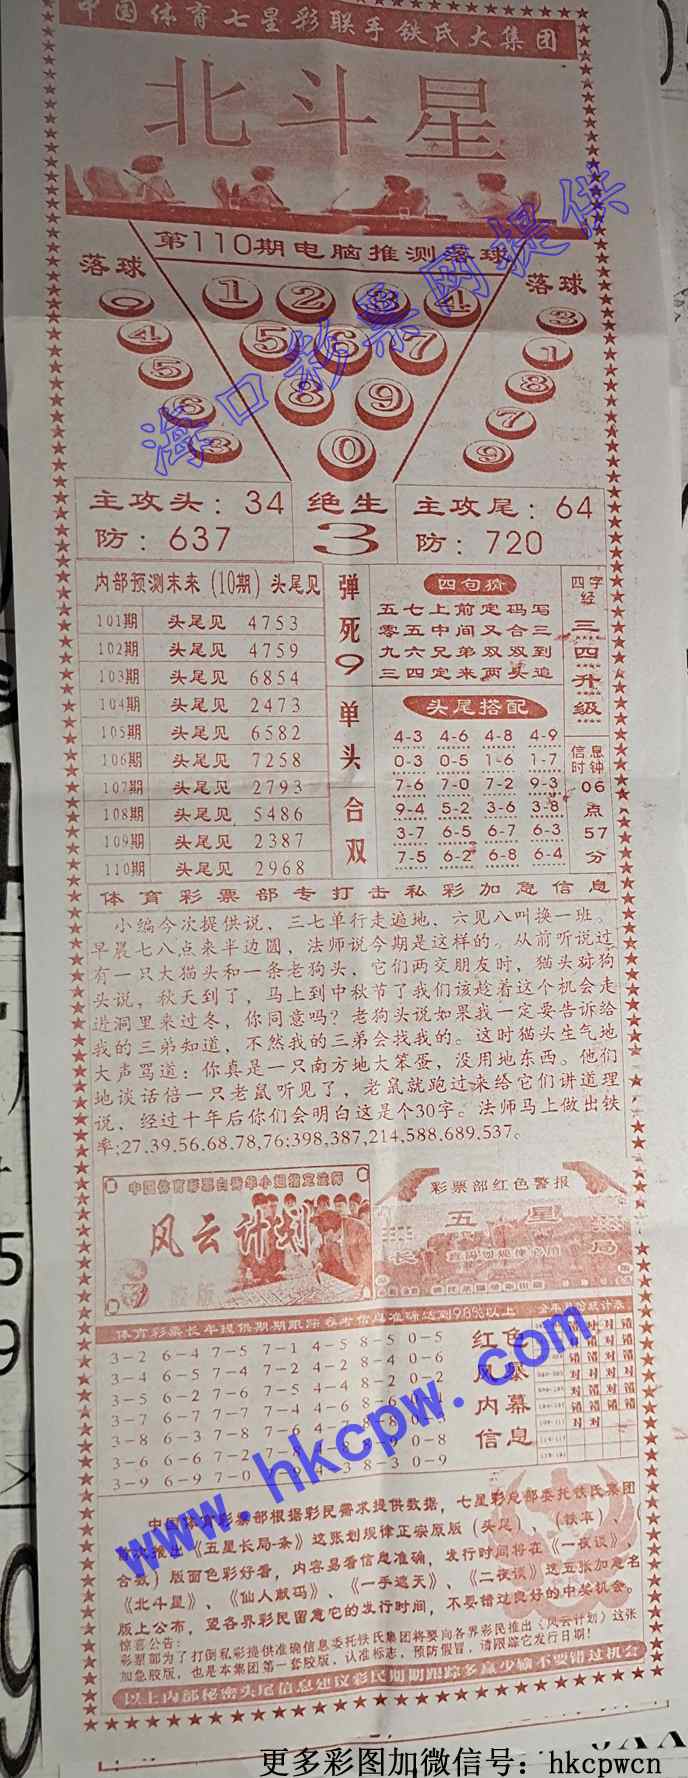 中国体育七星彩联手铁氏大集团
北斗星
第110期电脑推测落球
落球
落球
0
4
5
6
3
1 2 3 4
5 6 7
8 9
0
3
1
8
7
9
主攻头：34
防：637
绝生
3
主攻尾：64
防：720
内部预测末来（10期）头尾见
101期 头尾见 4753
102期 头尾见 4759
103期 头尾见 6854
104期 头尾见 2473
105期 头尾见 6582
106期 头尾见 7258
107期 头尾见 2793
108期 头尾见 5486
109期 头尾见 2387
110期 头尾见 2968
弹死9单头合双
四句猜
五七上前定码写
零五中间又合三
九六兄弟双双到
三四定来两头追
头尾搭配
4-3 4-6 4-8 4-9
0-3 0-5 1-6 1-7
7-6 7-0 7-2 9-3
9-4 5-2 3-6 3-8
3-7 6-5 6-7 6-3
7-5 6-2 6-8 6-4
四字经
三四升级
信息时钟
06
点
57
分
体育彩票部专打击私彩加急信息
小编今次提供说，三七单行走遍地，六见八叫换一班。
早晨七八点来半边圆，法师说今期是这样的。从前听说过
有一只大猫头和一条老狗头，它们两交朋友时，猫头对狗
头说，秋天到了，马上到中秋节了我们该趁着这个机会走
进洞里来过冬，你同意吗？老狗头说如果我一定要告诉给
我的三弟知道，不然我的三弟会找我的。这时猫头生气地
大声骂道：你真是一只南方地大笨蛋，没用地东西。他们
地谈话倍一只老鼠听见了，老鼠就跑过来给它们讲道理
说，经过十年后你们会明白这是个30字。法师马上做出铁
率;27,39,56,68,78,76;398,387,214,588,689,537。
风云计划
胶版
彩票部红色警报
五星
长
局
体育彩票长年提供期期跟踪参考信息准确达到98%以上
3-2 6-4 7-5 7-1 4-5 8-5 0-5
红色
风暴
内幕
信息
中国体育彩票部根据彩民需求提供数据，七星彩总部委托铁氏集团
首次推出《五星长局-条》这张划规律正宗原版（头足）、（铁率）、
合数）版面色彩好看，内容易看信息准确，发行时间将在《一夜谈》，
《北斗星》、《仙人献码》、《一手遮天》、《二夜谈》这五张加急名
版上公布，望各界彩民留意它的发行时间，不要错过良好的中奖机会。
惊喜公告：
彩票部为了打倒私彩提供准确信息委托铁氏集团将要向各界彩民推出《风云计划》这张
加急胶版，也是本集团第一套胶版，认准标志，预防假冒，请跟踪它发行日期！
以上内部秘密头尾信息建议彩民期期跟踪多赢少输不要错过机会
海口彩票网提供
www.hkcpw.com
更多彩图加微信号：hkcpwcn